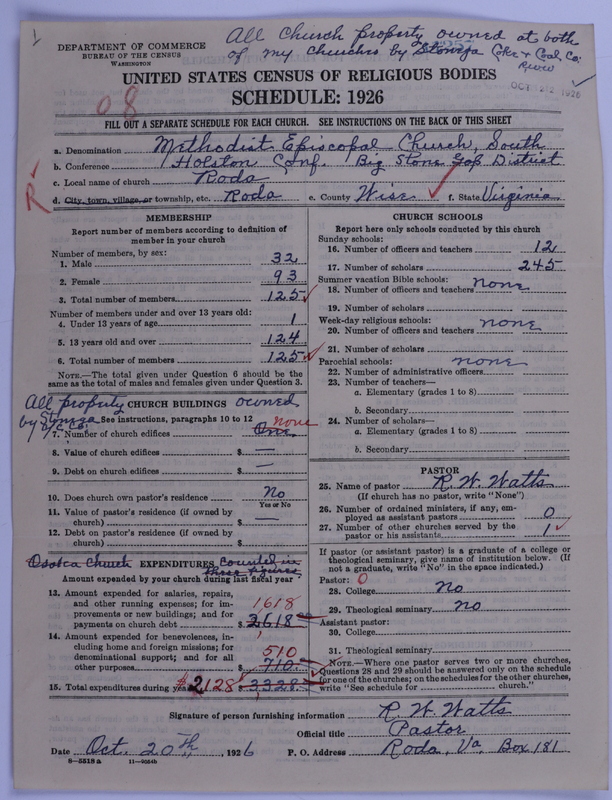 1
All Church property owned at both
of my churches by Stonega Coke & Coal Co.
DEPARTMENT OF COMMERCE
BUREAU OF THE CENSUS
WASHINGTON
OCT 22 1926
UNITED STATES CENSUS OF RELIGIOUS BODIES
SCHEDULE: 1926
08
FILL OUT A SEPARATE SCHEDULE FOR EACH CHURCH. SEE INSTRUCTIONS ON THE BACK OF THIS SHEET
a. Denomination Methodist Episcopal Church, South
b. Conference Holston Conf. Big Stone Gap District
c. Local name of church Roda
R
d. City, town, village, or township, etc. Roda e. County Wise f. State Virginia
MEMBERSHIP
Report number of members according to definition of
member in your church
Number of members, by sex:
1. Male 32
2. Female 93
3. Total number of members 125
Number of members under and over 13 years old:
4. Under 13 years of age 1
5. 13 years old and over 124
6. Total number of members 125
NOTE.—The total given under Question 6 should be
same as the total of males and females given under Question 3.
All property CHURCH BUILDINGS owned
by Stonega See instructions, paragraphs 10 to 12
C. & C. Co.
none
7. Number of church edifices One
8. Value of church edifices $ —
9. Debt on church edifices $ —
10. Does church own pastor's residence No
Yes or No
11. Value of pastor's residence (if owned by
church) $ —
12. Debt on pastor's residence (if owned by
church) $
Osaka Church EXPENDITURES counted in
these figures
Amount expended by your church during last fiscal year
13. Amount expended for salaries, repairs,
and other running expenses; for im-
provements or new buildings; and for
payments on church debt $ 2618
1618
14. Amount expended for benevolences,
including home and foreign missions; for
denominational support; and for all
other purposes $ 710
510
15. Total expenditures during year $ 3328
2128
CHURCH SCHOOLS
Report here only schools conducted by this church
Sunday schools:
16. Number of officers and teachers 12
17. Number of scholars 245
Summer vacation Bible schools:
18. Number of officers and teachers none
19. Number of scholars
Week-day religious schools:
20. Number of officers and teachers none
21. Number of scholars
Parochial schools: none
22. Number of administrative officers
23. Number of teachers—
a. Elementary (grades 1 to 8)
b. Secondary
24. Number of scholars—
a. Elementary (grades 1 to 8)
b. Secondary
PASTOR
25. Name of pastor R. W. Watts
(If church has no pastor, write "None")
26. Number of ordained ministers, if any, em-
ployed as assistant pastors 0
27. Number of other churches served by the
pastor or his assistants 1
If pastor (or assistant pastor) is a graduate of a college or
theological seminary, give name of institution below. (If
not a graduate, write "No" in the space indicated.)
Pastor: 0
28. College No
29. Theological seminary No
Assistant pastor:
30. College
31. Theological seminary
NOTE.—Where one pastor serves two or more churches,
Questions 28 and 29 should be answered only on the schedule
for one of the churches; on the schedules for the other churches,
write "See schedule for church."
Signature of person furnishing information R. W. Watts
Official title Pastor
Date Oct. 20th, 1926 P. O. Address Roda, Va, Box 181
8—5518a 11—9064b